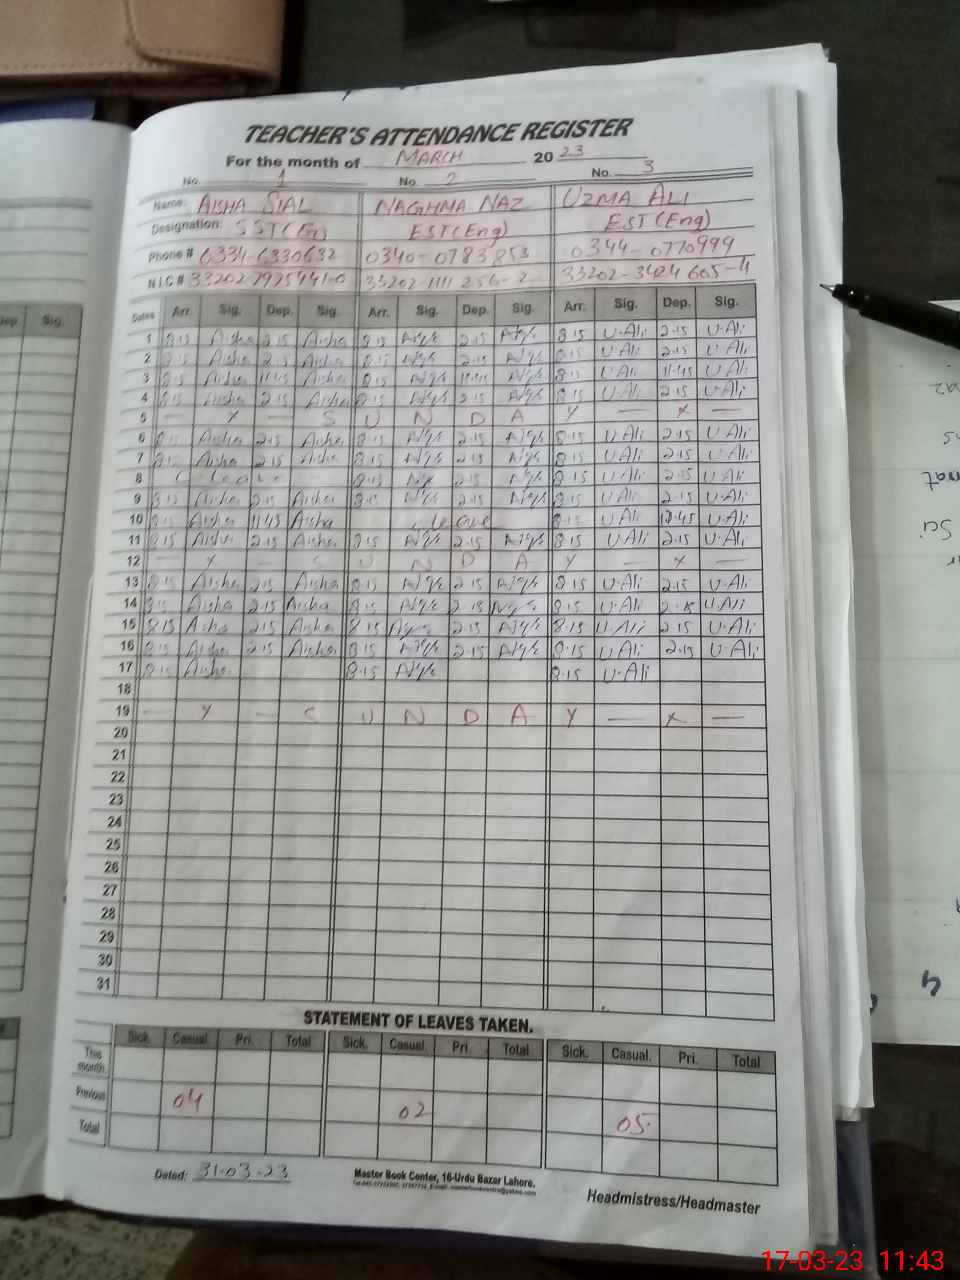 TEACHER'S ATTENDANCE REGISTER
For the month of MARCH 2023
No. 1 No. 2 No. 3
Name: AISHA SIAL NAGHMA NAZ UZMA ALI
Designation: SST( EST(Eng) EST(Eng)
Phone # 0334-6330632 0340-0783853 0344-0770999
N.I.C # 33202-7975441-0 33202-1111256-2 33202-3424605-4
Dates Arr. Sig. Dep. Sig. Arr. Sig. Dep. Sig. Arr. Sig. Dep. Sig.
1 8.15 Aisha 2.15 Aisha 8.15 2.15 8.15 U-Ali 2.15 U-Ali
2 8.15 Aisha 2.15 Aisha 8.15 2.15 8.15 U-Ali 2.15 U-Ali
3 8.15 Aisha 11.45 Aisha 8.15 11.45 8.15 U-Ali 11.45 U-Ali
4 8.15 Aisha 2.15 Aisha 8.15 2.15 8.15 U-Ali 2.15 U-Ali
5 — x — S U N D A Y — x —
6 8.15 Aisha 2.15 Aisha 8.15 2.15 8.15 U-Ali 2.15 U-Ali
7 8.15 Aisha 2.15 Aisha 8.15 2.15 8.15 U-Ali 2.15 U-Ali
8 Leave 8.15 2.15 8.15 U-Ali 2.15 U-Ali
9 8.15 Aisha 2.15 Aisha 8.15 2.15 8.15 U-Ali 2.15 U-Ali
10 8.15 Aisha 11.45 Aisha Leave 8.15 U-Ali U-Ali
11 8.15 Aisha 2.15 Aisha 8.15 2.15 8.15 U-Ali 2.15 U-Ali
12 — x — S U N D A Y — x —
13 8.15 Aisha 2.15 Aisha 8.15 2.15 8.15 U-Ali 2.15 U-Ali
14 8.15 Aisha 2.15 Aisha 8.15 2.15 8.15 U-Ali 2.15 U-Ali
15 8.15 Aisha 2.15 Aisha 8.15 2.15 8.15 U-Ali 2.15 U-Ali
16 8.15 Aisha 2.15 Aisha 8.15 2.15 8.15 U-Ali 2.15 U-Ali
17 8.15 Aisha 8.15 8.15 U-Ali
18
19 — x — S U N D A Y — x —
20
21
22
23
24
25
26
27
28
29
30
31
STATEMENT OF LEAVES TAKEN.
Sick. Casual. Pri. Total Sick. Casual. Pri. Total Sick. Casual. Pri. Total
This month.
Previous 04 02 05.
Total
Dated: 31-03-23
Master Book Center, 16-Urdu Bazar Lahore.
Headmistress/Headmaster
17-03-23 11:43